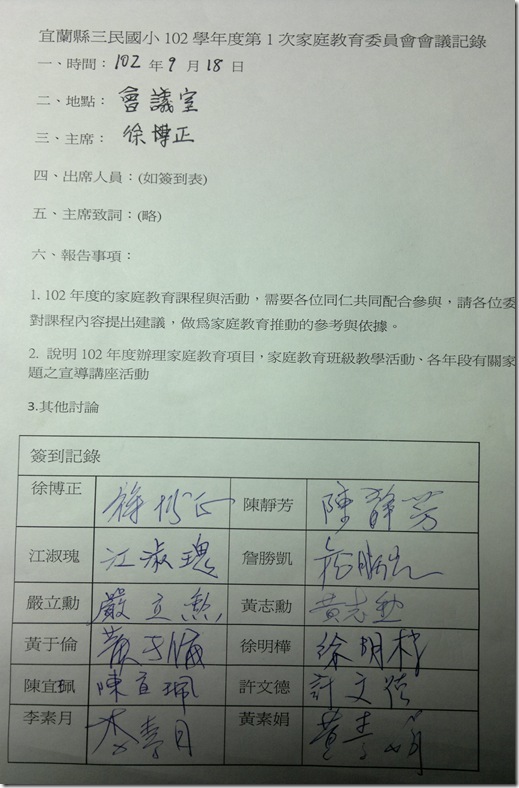 宜蘭縣三民國小 102 學年度第 1 次家庭教育委員會會議記錄
一、時間：102 年 9 月 18 日
二、地點：會議室
三、主席：徐博正
四、出席人員：(如簽到表)
五、主席致詞：(略)
六、報告事項：
1. 102 年度的家庭教育課程與活動，需要各位同仁共同配合參與，請各位委
對課程內容提出建議，做為家庭教育推動的參考與依據。
2. 說明 102 年度辦理家庭教育項目，家庭教育班級教學活動、各年段有關家
題之宣導講座活動
3.其他討論
簽到記錄
徐博正 徐博正 陳靜芳 陳靜芳
江淑瑰 江淑瑰 詹勝凱 詹勝凱
嚴立勳 嚴立勲 黃志勳 黃志勳
黃于倫 黃于倫 徐明樺 徐明樺
陳宜珮 陳宜珮 許文德 許文德
李素月 李素月 黃素娟 黃素娟